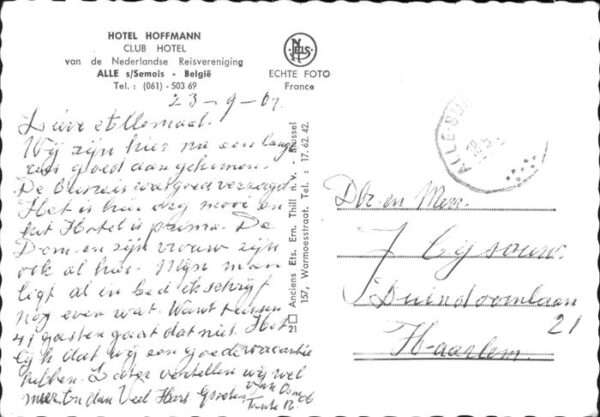 HOTEL HOFFMANN
CLUB HOTEL
van de Nederlandse Reisvereniging
ALLE s/Semois - België
Tel.: (061) - 503 69
NELS
ECHTE FOTO
France
23-9-67.
Lieve allemaal.
Wij zijn hier na een lange
reis goed aangekomen.
De is wat goed verzorgd
Het is hier erg mooi en
het Hotel is prima. De
Dom. en zijn vrouw zijn
ook al hier. Mijn man
ligt al in bed ik schrijf
nog even wat. Want tussen
41 gasten gaat dat niet. Het
lijkt dat wij een goede vacantie
hebben. Later vertellen wij wel
meer en dan Veel Hart. Groeten
van Oom
Tante
Anciens Ets. Ern. Thill N.V. - Brussel
157, Warmoesstraat. Tel.: 17.62.42.
21
ALLE-SUR
Dhr. en Mevr.
J
Duindoornlaan
21
Haarlem.